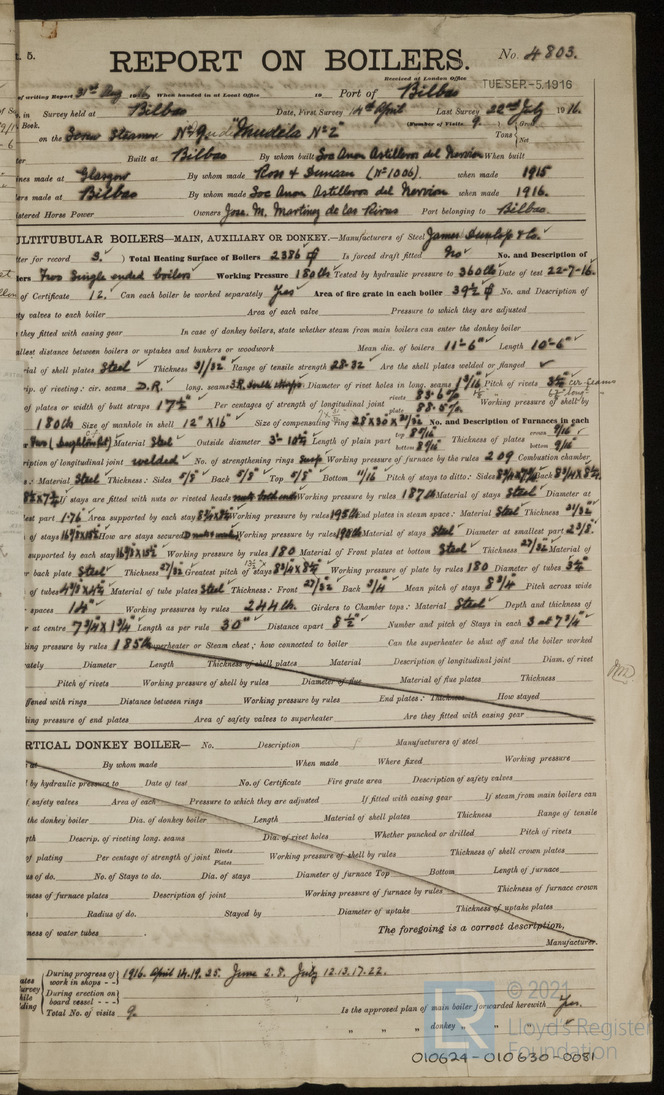 t. 5.
REPORT ON BOILERS.
No. 4803.
Received at London Office
TUE SEP -5 1916
of writing Report 31st Aug 1916 When handed in at Local Office 19 Port of Bilbao
in Survey held at Bilbao Date, First Survey 14th April Last Survey 22nd July 1916.
Book. (Number of Visits 9) Gross
on the Screw Steamer Mudela No 2 Tons Net
Built at Bilbao By whom built Soc Anon Astilleros del Nervion When built
ines made at Glasgow By whom made Ross & Duncan (No 1006) when made 1915
ers made at Bilbao By whom made Soc Anon Astilleros del Nervion when made 1916.
istered Horse Power Owners Jose. M. Martinez de las Rivas Port belonging to Bilbao.
ULTITUBULAR BOILERS—MAIN, AUXILIARY OR DONKEY.—Manufacturers of Steel James Dunlop & Co.
tter for record S. ) Total Heating Surface of Boilers 2386 Is forced draft fitted No No. and Description of
ers Two Single ended boilers Working Pressure 180 lb Tested by hydraulic pressure to 360 lb Date of test 22-7-16.
of Certificate 12. Can each boiler be worked separately Yes Area of fire grate in each boiler 39½ No. and Description of
ty valves to each boiler Area of each valve Pressure to which they are adjusted
they fitted with easing gear In case of donkey boilers, state whether steam from main boilers can enter the donkey boiler
allest distance between boilers or uptakes and bunkers or woodwork Mean dia. of boilers 11'-6" Length 10'-6"
rial of shell plates Steel Thickness 31/32" Range of tensile strength 28-32 Are the shell plates welded or flanged
rip. of riveting: cir. seams D.R. long. seams Diameter of rivet holes in long. seams 1 1/16 Pitch of rivets cir. seams
of plates or width of butt straps 17½" Per centages of strength of longitudinal joint rivets 83.6% plate 88.5% Working pressure of shell by
180 lb Size of manhole in shell 12" x 16" Size of compensating ring No. and Description of Furnaces in each
Two (Deighton) Material Steel Outside diameter Length of plain part top bottom Thickness of plates crown 9/16" bottom 9/16"
ription of longitudinal joint welded No. of strengthening rings Working pressure of furnace by the rules 209 Combustion chamber
s: Material Steel Thickness: Sides 5/8" Back 5/8" Top 5/8" Bottom 11/16" Pitch of stays to ditto: Sides Back
If stays are fitted with nuts or riveted heads Working pressure by rules 187 lb Material of stays Steel Diameter at
lest part 1.76 Area supported by each stay Working pressure by rules End plates in steam space: Material Steel Thickness 31/32
of stays How are stays secured Working pressure by rules Material of stays Steel Diameter at smallest part 2 3/8"
supported by each stay Working pressure by rules 180 Material of Front plates at bottom Steel Thickness 27/32 Material of
er back plate Steel Thickness 27/32 Greatest pitch of stays Working pressure of plate by rules 180 Diameter of tubes 3½"
of tubes Material of tube plates Steel Thickness: Front 27/32" Back 3/4" Mean pitch of stays 8 3/4" Pitch across wide
r spaces 14" Working pressures by rules 244 lb. Girders to Chamber tops: Material Steel Depth and thickness of
er at centre 7 3/4 x 1 3/4 Length as per rule 30" Distance apart 8½" Number and pitch of Stays in each 3 at 7 3/4"
king pressure by rules 185 lb Superheater or Steam chest; how connected to boiler Can the superheater be shut off and the boiler worked
rately Diameter Length Thickness of shell plates Material Description of longitudinal joint Diam. of rivet
Pitch of rivets Working pressure of shell by rules Diameter of flue Material of flue plates Thickness
ffened with rings Distance between rings Working pressure by rules End plates: Thickness How stayed
king pressure of end plates Area of safety valves to superheater Are they fitted with easing gear
RTICAL DONKEY BOILER— No. Description Manufacturers of steel
at By whom made When made Where fixed Working pressure
d by hydraulic pressure to Date of test No. of Certificate Fire grate area Description of safety valves
f safety valves Area of each Pressure to which they are adjusted If fitted with easing gear If steam from main boilers can
the donkey boiler Dia. of donkey boiler Length Material of shell plates Thickness Range of tensile
gth Descrip. of riveting long. seams Dia. of rivet holes Whether punched or drilled Pitch of rivets
of plating Per centage of strength of joint Rivets Plates Working pressure of shell by rules Thickness of shell crown plates
us of do. No. of Stays to do. Dia. of stays Diameter of furnace Top Bottom Length of furnace
ness of furnace plates Description of joint Working pressure of furnace by rules Thickness of furnace crown
Radius of do. Stayed by Diameter of uptake Thickness of uptake plates
ness of water tubes The foregoing is a correct description,
Manufacturer.
ates During progress of work in shops - - 1916. April 14.19.25. June 2.8. July 12.13.17.22.
urvey During erection on board vessel - - -
ding Total No. of visits 9. Is the approved plan of main boiler forwarded herewith Yes.
" " donkey " " "
© 2021
Lloyd's Register
Foundation
LR
010624-010630-0081